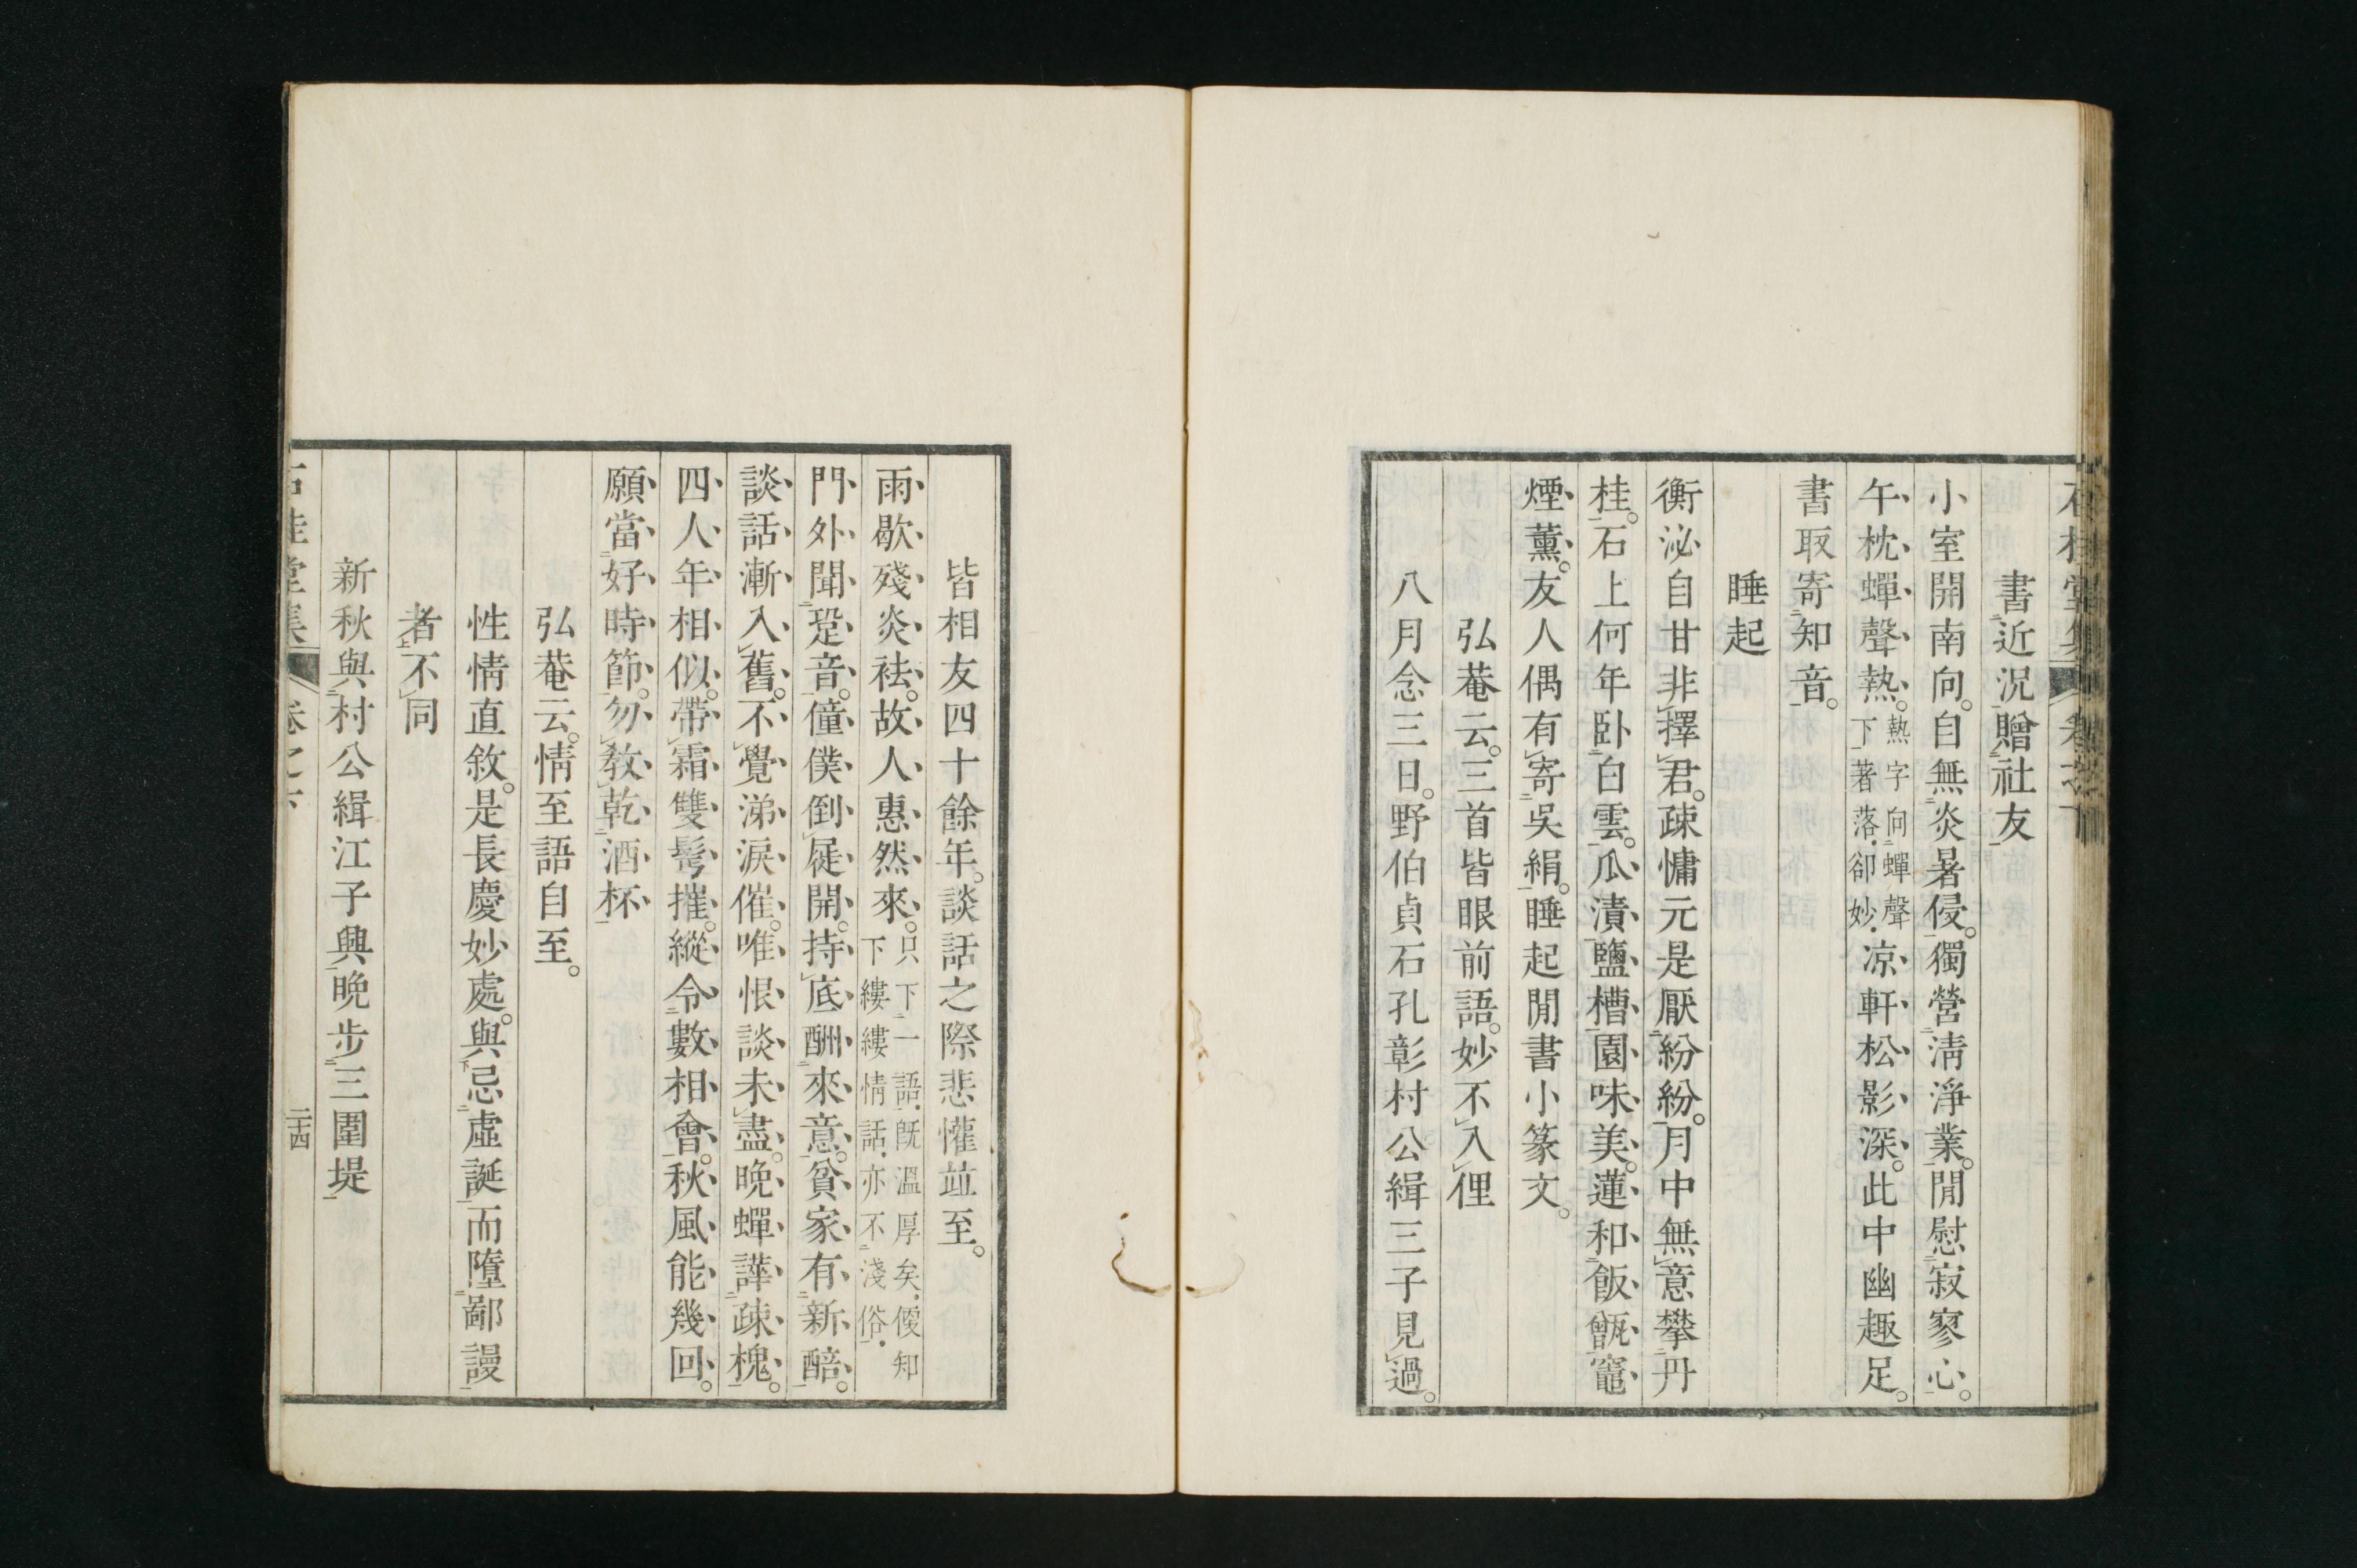 書近況贈社友
小室開南向。自無炎暑侵。獨營清淨業。閒慰寂寥心。
午枕蟬聲熱。熱字向蟬聲下著落。卻妙。凉軒松影深。此中幽趣足。
書取寄知音。
睡起
衡泌自甘非擇君。疎慵元是厭紛紛。月中無意攀丹
桂。石上何年臥白雲。瓜漬鹽槽園味美。蓮和飯甑竈
煙薰。友人偶有寄吳絹。睡起閒書小篆文。
弘菴云。三首皆眼前語。妙不入俚
八月念三日。野伯貞石孔彰村公緝三子見過。
皆相友四十餘年。談話之際悲懽竝至。
雨歇殘炎袪。故人惠然來。只下一語。既溫厚矣。便知下縷縷情話。亦不淺俗。
門外聞跫音。僮僕倒屣開。持底酬來意。貧家有新醅。
談話漸入舊。不覺涕淚催。唯恨談未盡。晚蟬譁疎槐。
四人年相似。帶霜雙鬢摧。縱令數相會。秋風能幾回。
願當好時節。勿教乾酒杯
弘菴云。情至語自至。
性情直敘。是長慶妙處。與忌虛誕而墮鄙謾
者不同
新秋與村公緝江子興晚步三圍堤
石桂堂集 卷之下 二十四